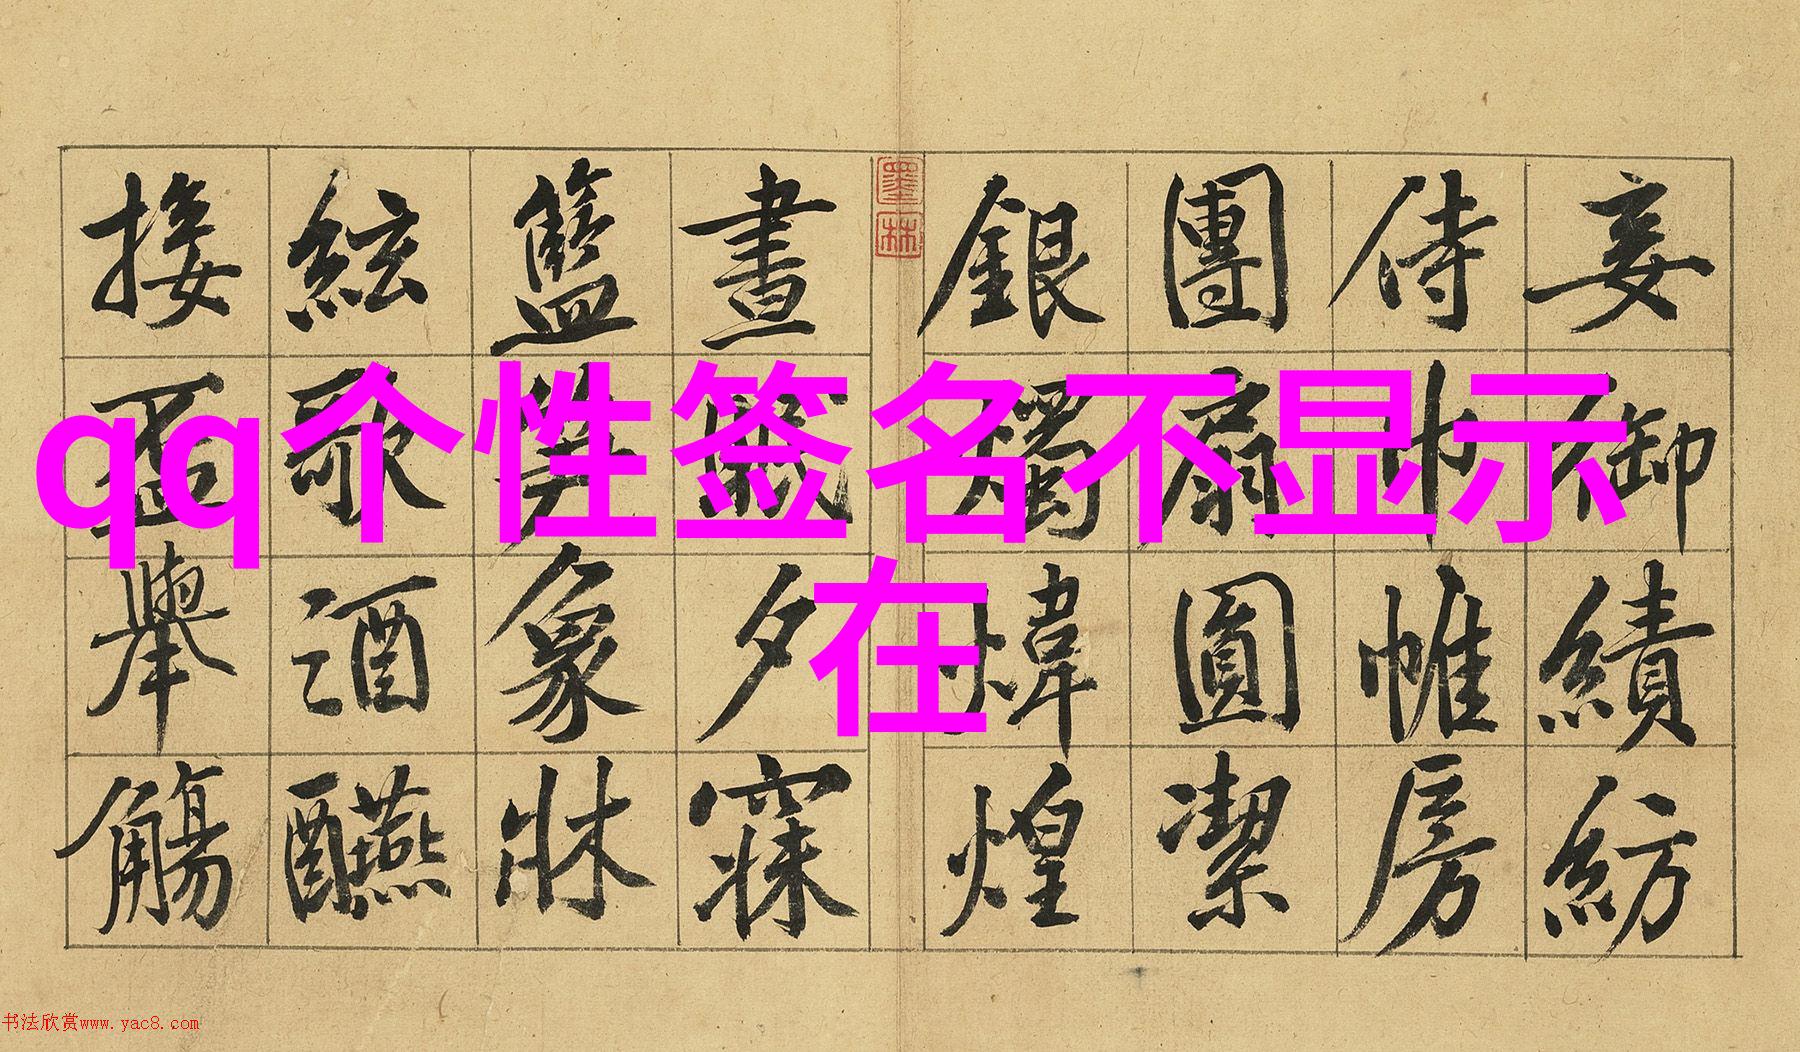 qq个性签名不显示
在
妾御績紡
侍巾帷房
團扇圓潔
銀燭煒煌
墨林
晝夕寐
籃笋象牀
絃歌酒醼
接盃舉觴
书法欣赏www.yac8.com